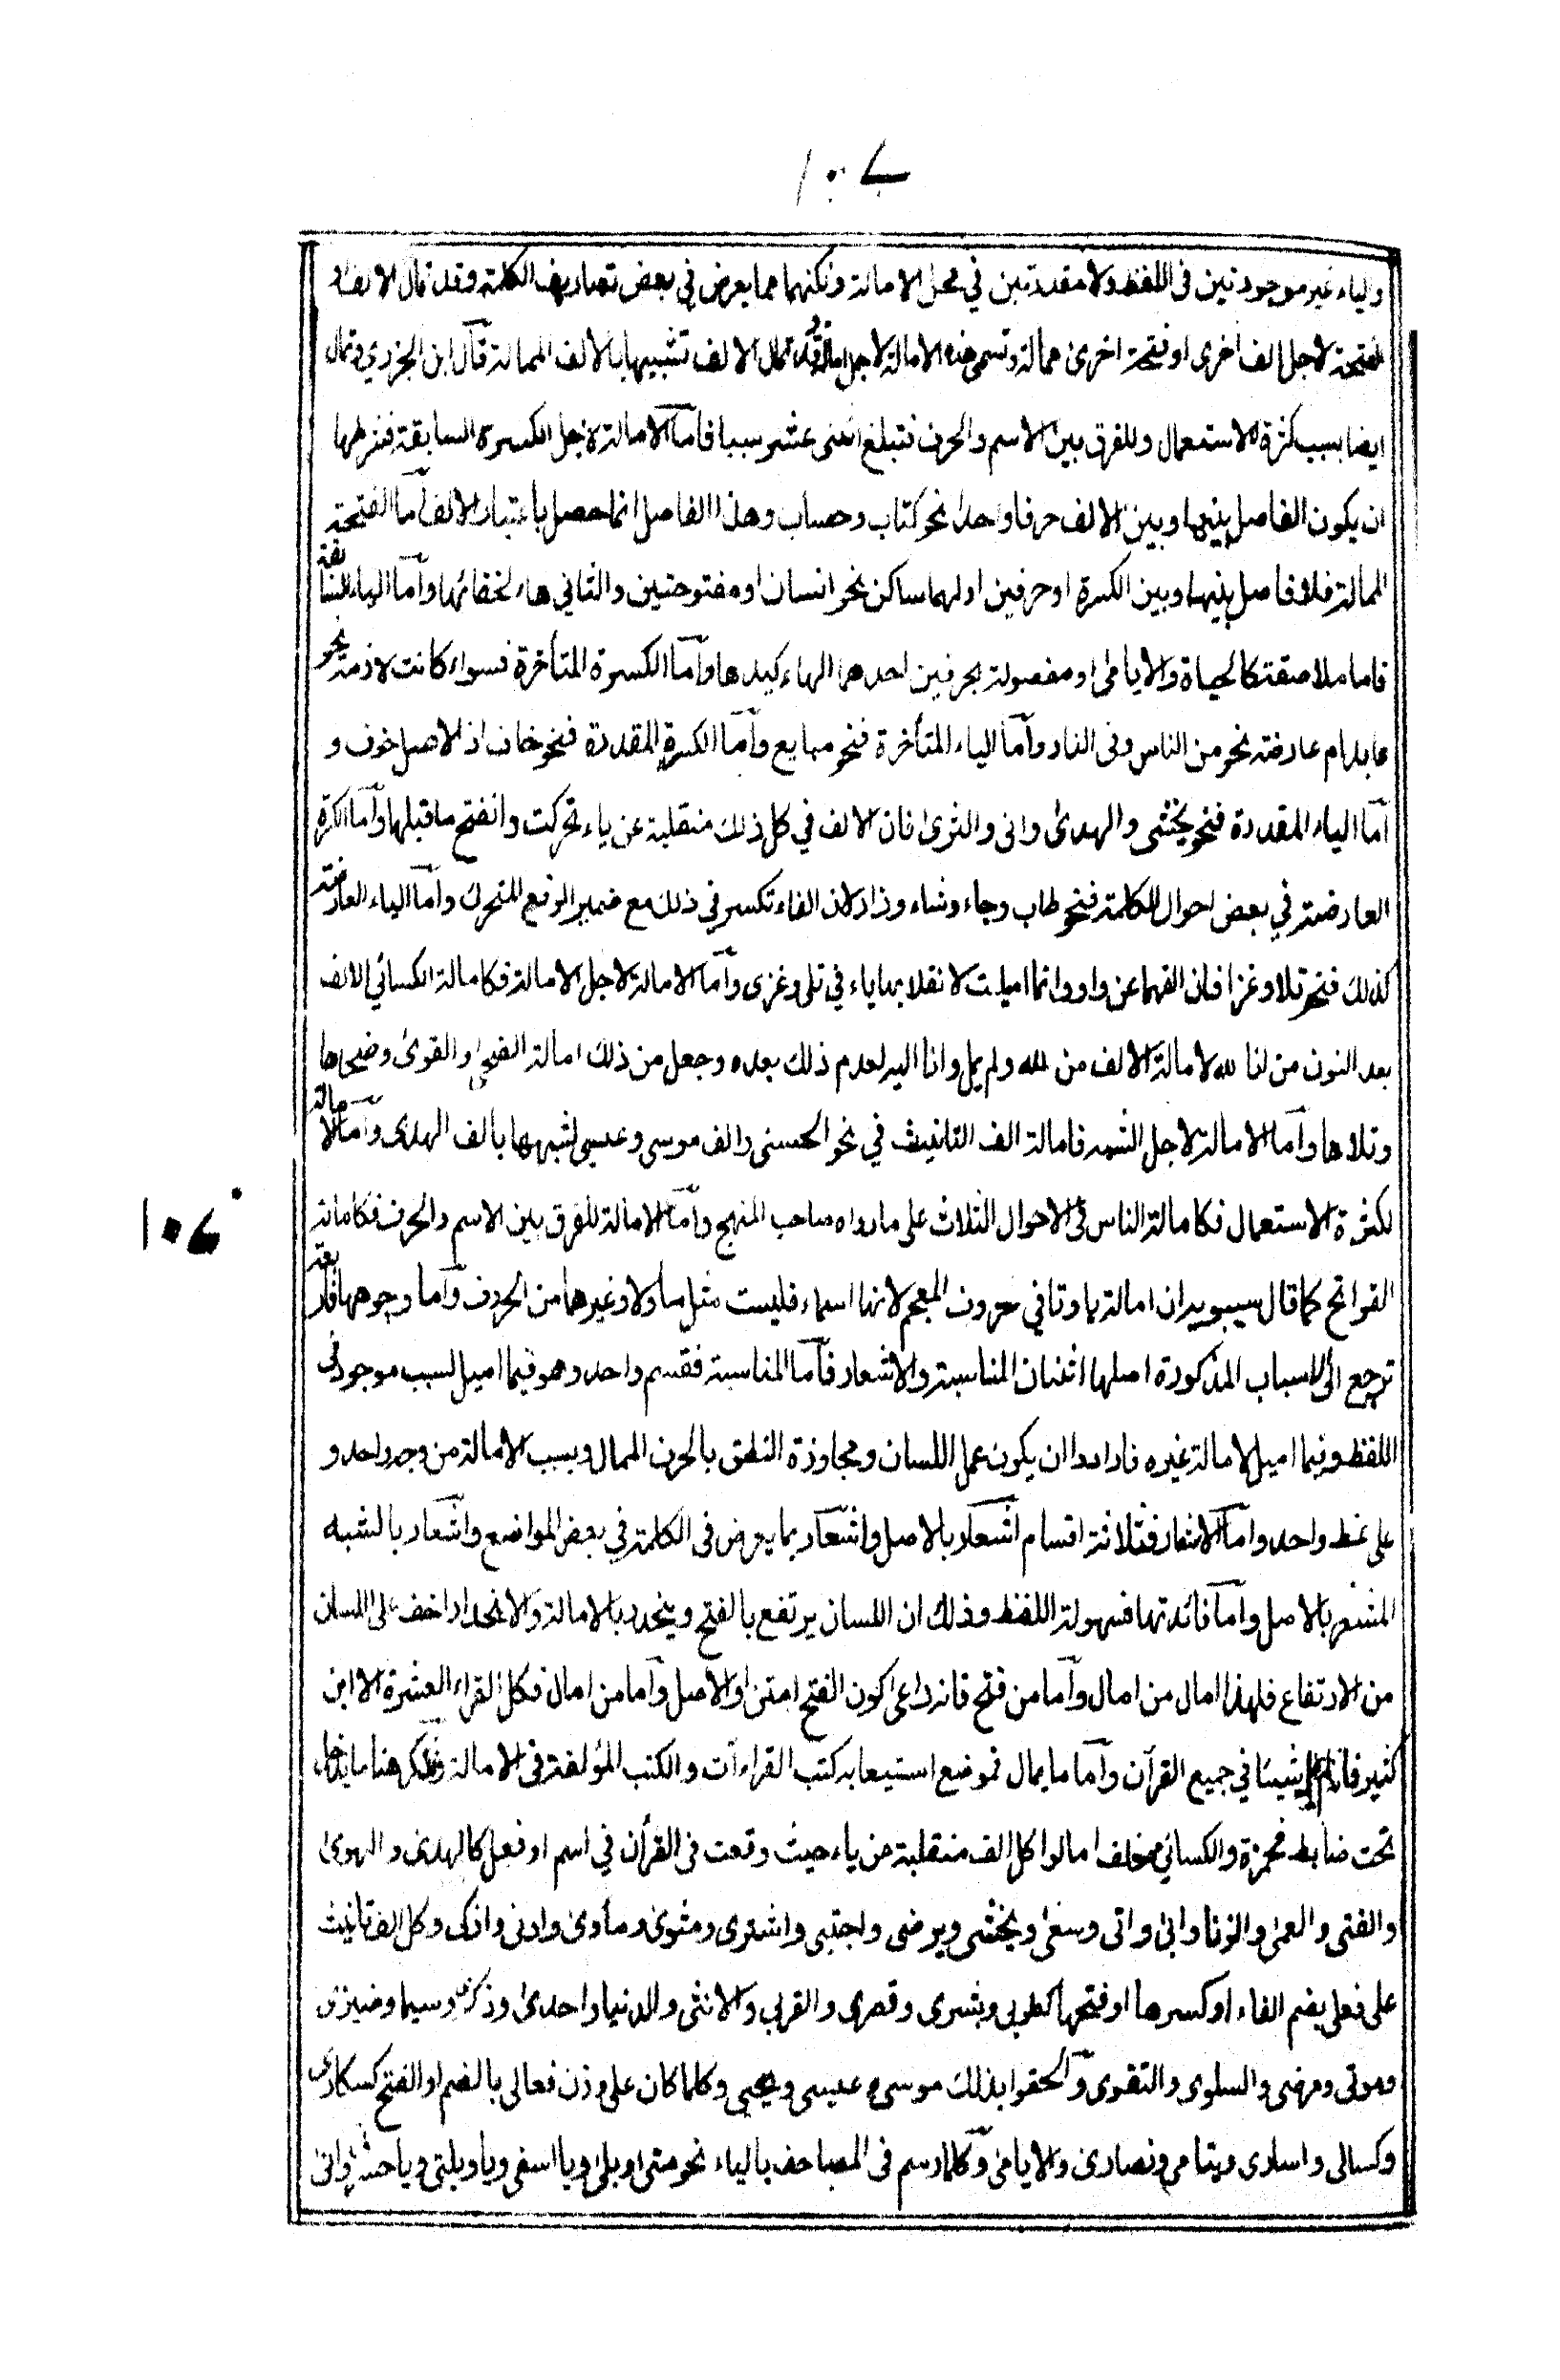 ١٠٧
والياء غير موجودتين فى اللفظ ولا مقدرتين في محل الامالة ولكنهما مما يعرض في بعض تصاريف الكلمة وقد تمال الالف او
الفتحة لاجل الف اخرى او فتحة اخرى ممالة وتسمى هذه الامالة لاجل امالة وقد تمال الالف تشبيها بالالف الممالة قال ابن الجزري وتمال
ايضا بسبب كثرة الاستعمال وللفرق بين الاسم والحرف فتبلغ اثنى عشر سببا فاما الامالة لاجل الكسرة السابقة فشرطها
ان يكون الفاصل بينها وبين الالف حرفا واحدا نحو كتاب وحساب وهذا الفاصل انما حصل باعتبار الالف اما الفتحة
الممالة فلا فاصل بينها وبين الكسرة او حرفين اولهما ساكن نحو انسان او مفتوحتين والثاني هاء لخفائها واما الياء السابقة
فاما ملاصقة كالحياة والايامى او مفصولة بحرفين احدهما الهاء كيدها واما الكسرة المتأخرة فسواء كانت لازمة نحو
عابد ام عارضة نحو من الناس وفى النار واما الياء المتأخرة فنحو مبايع واما الكسرة المقدرة فنحو خاف اذ الاصل خوف و
اما الياء المقدرة فنحو يخشى والهدى وانى والثرى فان الالف في كل ذلك منقلبة عن ياء تحركت وانفتح ما قبلها واما الكسرة
العارضة في بعض احوال الكلمة فنحو طاب وجاء وشاء وزاد لان الفاء تكسر في ذلك مع ضمير الرفع المتحرك واما الياء العارضة
كذلك فنحو تلا وغزا فان الفهما عن واو وانما اميلت لانقلابها ياء في تلى وغزى واما الامالة لاجل الامالة فكامالة الكسائي الالف
بعد النون من انا لله لامالة الالف من لله ولم يمل وانا اليه لعدم ذلك بعده وجعل من ذلك امالة الضحى والقوى وضحاها
وتلاها واما الامالة لاجل الشبه فامالة الف التانيث في نحو الحسنى والف موسى وعيسى لشبهها بالف الهدى واما الامالة
لكثرة الاستعمال فكامالة الناس فى الاحوال الثلاث على ما رواه صاحب المنهج واما الامالة للفرق بين الاسم والحرف فكامالة
الفواتح كما قال سيبويه ان امالة با وتا في حروف المعجم لانها اسماء فليست مثل ما ولا وغيرهما من الحروف واما وجوهها فاربعة
ترجع الى الاسباب المذكورة اصلها اثنان المناسبة والاشعار فاما المناسبة فقسم واحد وهو فيما اميل لسبب موجود فى
اللفظ وفيما اميل لامالة غيره فارادوا ان يكون عمل اللسان ومجاوزة النطق بالحرف الممال وبسبب الامالة من وجه واحد و
على نمط واحد واما الاشعار فثلاثة اقسام اشعار بالاصل واشعار بما يعرض فى الكلمة في بعض المواضع واشعار بالشبه
المشعر بالاصل واما فائدتها فسهولة اللفظ وذلك ان اللسان يرتفع بالفتح وينحدر بالامالة والانحدار اخف على اللسان
من الارتفاع فلهذا امال من امال واما من فتح فانه راعى كون الفتح امتن او الاصل واما من امال فكل القراء العشرة الا ابن
كثير فانه لم يمل شيئا في جميع القرآن واما ما يمال فموضع استيعابه كتب القراءات والكتب المؤلفة فى الامالة ونذكر هنا ما يدخل
تحت ضابط فحمزة والكسائي وخلف امالوا كل الف منقلبة عن ياء حيث وقعت فى القرأن في اسم او فعل كالهدى والهوى
والفتى والعمى والزنا وابى واتى وسعى ويخشى ويرضى واجتبى واشترى ومثوى ومأوى وادنى وازكى وكل الف تانيث
على فعلى بضم الفاء او كسرها او فتحها كطوبى وبشرى وقصوى والقربى والانثى والدنيا واحدى وذكرى وسيما وضيزى
وموتى ومرضى والسلوى والتقوى والحقوا بذلك موسى وعيسى ويحيى وكلما كان على وزن فعالى بالضم او الفتح كسكارى
وكسالى واسارى ويتامى ونصارى والايامى وكلما رسم فى المصاحف بالياء نحو متى وبلى ويا اسفى ويا ويلتى ويا حسرتى وانى
١٠٧